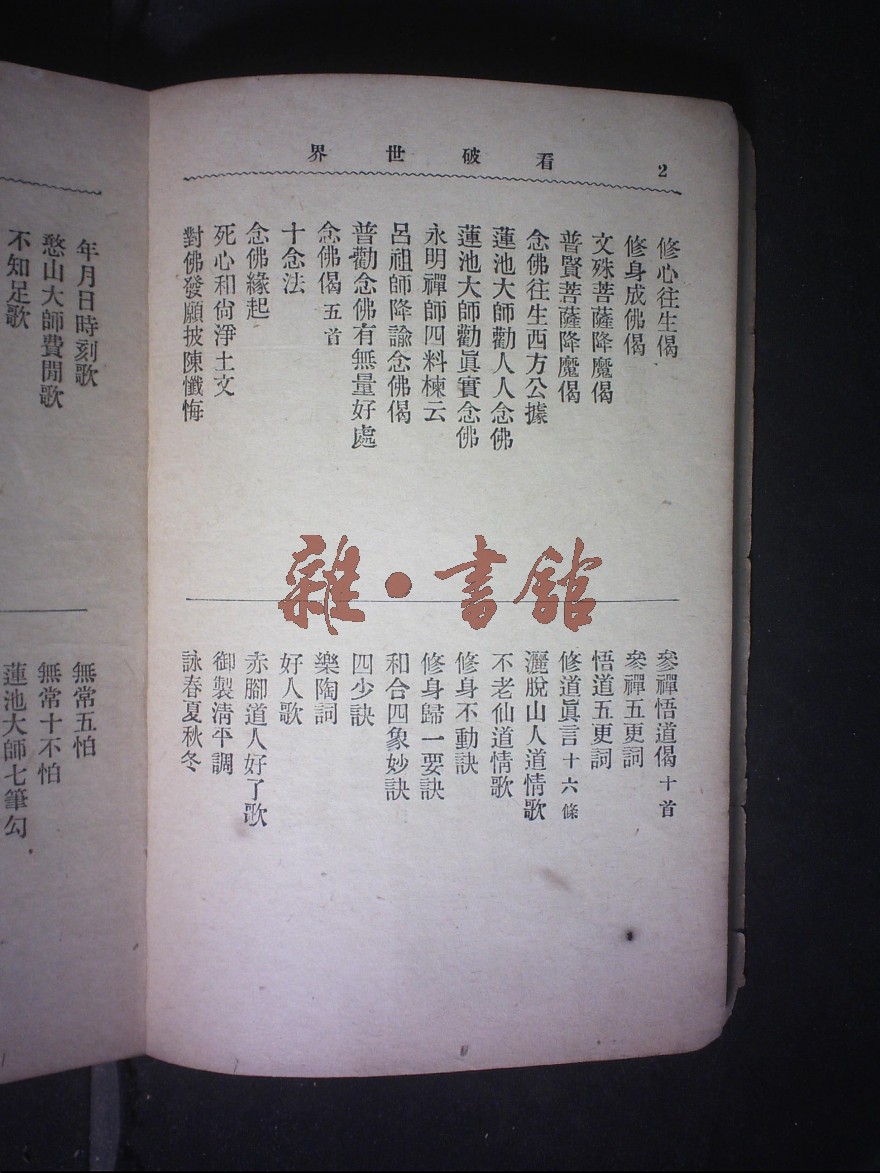 看破世界
2
修心往生偈
修身成佛偈
文殊菩薩降魔偈
普賢菩薩降魔偈
念佛往生西方公據
蓮池大師勸人人念佛
蓮池大師勸眞實念佛
永明禪師四料棟云
呂祖師降諭念佛偈
普勸念佛有無量好處
念佛偈五首
十念法
念佛緣起
死心和尙淨土文
對佛發願披陳懺悔
參禪悟道偈十首
參禪五更詞
悟道五更詞
修道眞言十六條
灑脫山人道情歌
不老仙道情歌
修身不動訣
修身歸一要訣
和合四象妙訣
四少訣
樂陶詞
好人歌
赤腳道人好了歌
御製淸平調
詠春夏秋冬
雜·書館
年月日時刻歌
憨山大師費閒歌
不知足歌
無常五怕
無常十不怕
蓮池大師七筆勾